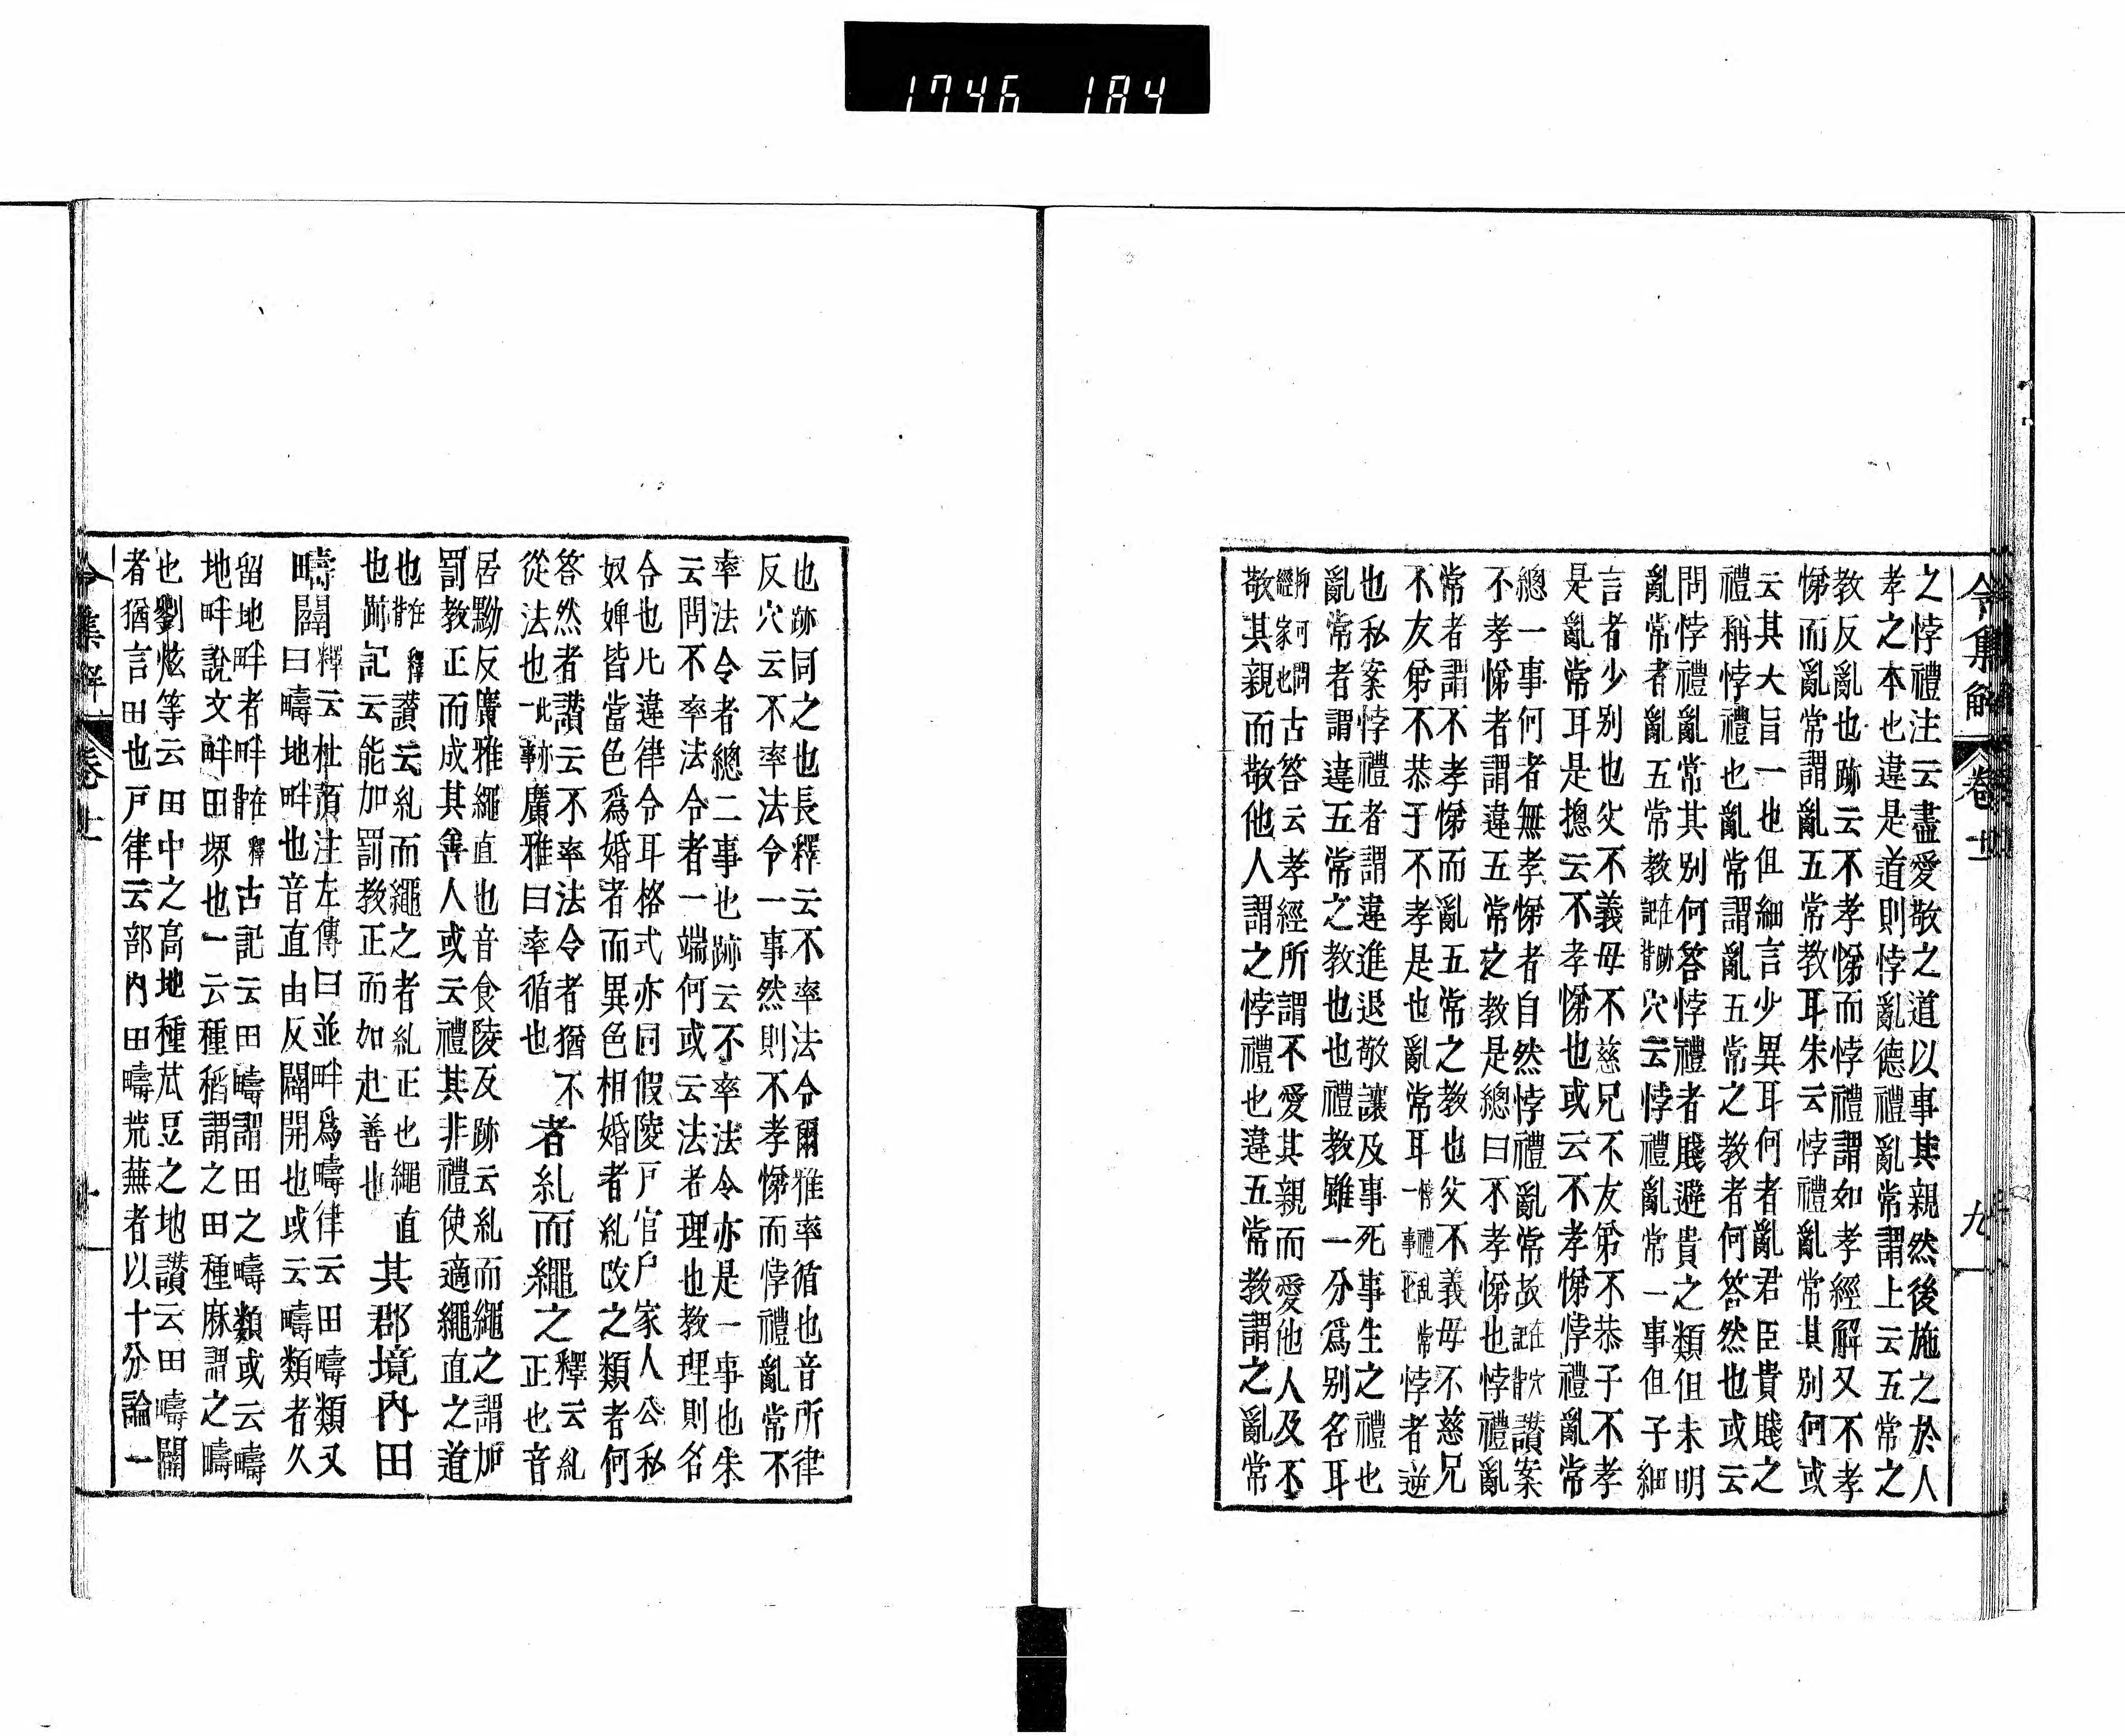 1746 184
令集解 卷十一 九
之悖禮注云盡愛敬之道以事其親然後施之於人
孝之本也違是道則悖亂德禮亂常謂上云五常之
教反亂也跡云不孝悌而悖禮謂如孝經解又不孝
悌而亂常謂亂五常教耳朱云悖禮亂常其別何或
云其大旨一也但細言少異耳何者亂君臣貴賤之
禮稱悖禮也亂常謂亂五常之教者何答然也或云
問悖禮亂常其別何答悖禮者賤避貴之類但未明
亂常者亂五常教在跡記背穴云悖禮亂常一事但子細
言者少別也父不義母不慈兄不友弟不恭子不孝
是亂常耳是摠云不孝悌也或云不孝悌悖禮亂常
總一事何者無孝悌者自然悖禮亂常故在穴記背讚案
不孝悌者謂違五常之教是總曰不孝悌也悖禮亂
常者謂不孝悌而亂五常之教也父不義母不慈兄
不友弟不恭于不孝是也亂常耳悖禮亂常一事悖者逆
也私案悖禮者謂違進退敬讓及事死事生之禮也
亂常者謂違五常之教也也禮教雖一分爲別名耳
抑可問經家也古答云孝經所謂不愛其親而愛他人及不
敬其親而敬他人謂之悖禮也違五常教謂之亂常
也跡同之也長釋云不率法令爾雅率循也音所律
反穴云不率法令一事然則不孝悌而悖禮亂常不
率法令者總二事也跡云不率法令亦是一事也朱
云問不率法令者一端何或云法者理也教理則名
令也凡違律令耳格式亦同假陵戶官戶家人公私
奴婢皆當色爲婚者而異色相婚者糺改之類者何
答然者讚云不率法令者猶不
從法也此跡一事廣雅曰率循也
者糺而繩之
釋云糺
正也音
居黝反廣雅繩直也音食陵反跡云糺而繩之謂加
罰教正而成其善人或云禮其非禮使適繩直之道
也在釋背讚云糺而繩之者糺正也繩直
也跡記云能加罰教正而如赴善也
其郡境內田
疇闢
釋云杜預注左傳曰並畔爲疇律云田疇類又
曰疇地畔也音直由反闢開也或云疇類者久
留地畔者畔在釋背古記云田疇謂田之疇類或云疇
地畔說文畔田堺也一云種稻謂之田種麻謂之疇
也劉炫等云田中之高地種苽豆之地讚云田疇闢
者猶言田也戶律云部內田疇荒蕪者以十分論一
令集解 卷十一